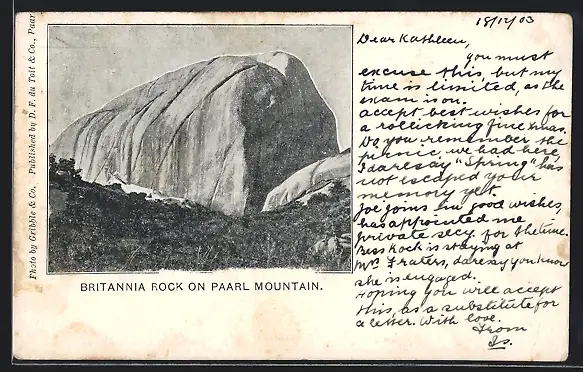 Photo by Gribble & Co. Published by D. F. du Toit & Co., Paarl
BRITANNIA ROCK ON PAARL MOUNTAIN.
18/12/03
Dear Kathleen,
you must
excuse this, but my
time is limited, as the
exam is on.
accept best wishes for
a rollicking fine Xmas.
Do you remember the
picnic we had here,
I daresay "Spring" has
not escaped your
memory yet.
Joe joins in good wishes,
has appointed me
private secy. for the time.
Bess Rock is staying at
Mrs Fraters, daresay you know
she is engaged.
Hoping you will accept
this, as a substitute for
a letter. With love.
From
Is.